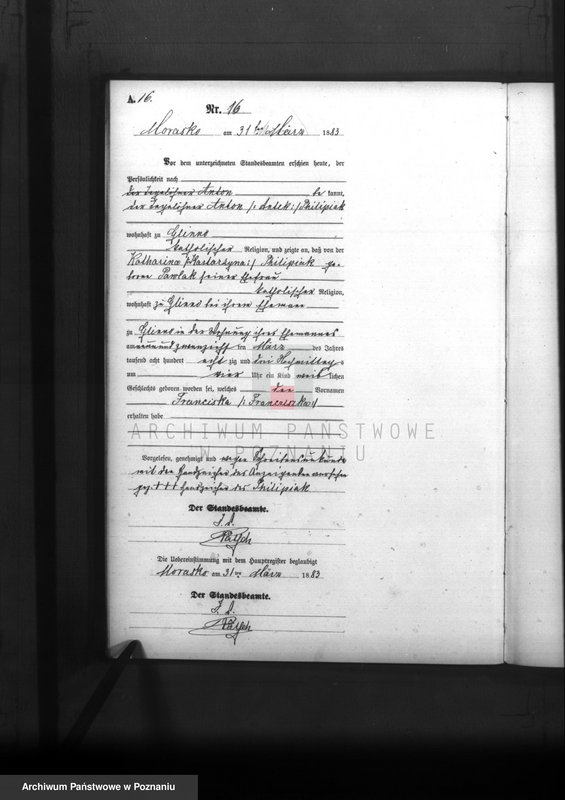 A. 16.
Nr. 16
Morasko am 31 ten März 1883
Vor dem unterzeichneten Standesbeamten erschien heute, der
Persönlichkeit nach
der Tagelöhner Anton be kannt,
der Tagelöhner Anton /: Antek :/ Philipiak
wohnhaft zu Glinno
katholischer Religion, und zeigte an, daß von der
Katharina /: Katarzyna :/ Philipiak ge-
borene Pawlak seiner Ehefrau
katholischer Religion,
wohnhaft zu Glinno bei ihrem Ehemann
zu Glinno in der Wohnung ihres Ehemannes
am neunundzwanzigsten März des Jahres
tausend acht hundert acht zig und drei Nachmittags
um vier Uhr ein Kind weib lichen
Geschlechts geboren worden sei, welches den Vornamen
Franciska /: Franciszka :/
erhalten habe
Vorgelesen, genehmigt und wegen Schreibensunkunde
mit den Handzeichen des Anzeigenden versehen
gez. +++ Handzeichen des Philipiak
Der Standesbeamte.
J. V.
Die Uebereinstimmung mit dem Hauptregister beglaubigt
Morasko am 31 ten März 1883
Der Standesbeamte.
J. V.
ARCHIWUM PAŃSTWOWE
W POZNANIU
Archiwum Państwowe w Poznaniu